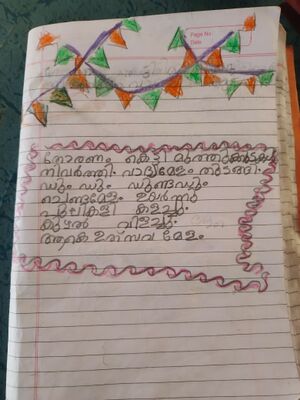 Page No
Date
തോരണം കെട്ടി മുത്തുക്കുടകൾ
നിവർത്തി. വാദ്യമേളം തുടങ്ങി.
ഡും ഡും ഡുണ്ടവും
ചെണ്ടമേളം ഉയർന്നു
കുഴൽ വിളിച്ചു.
ആകെ ഉത്സവ മേളം.